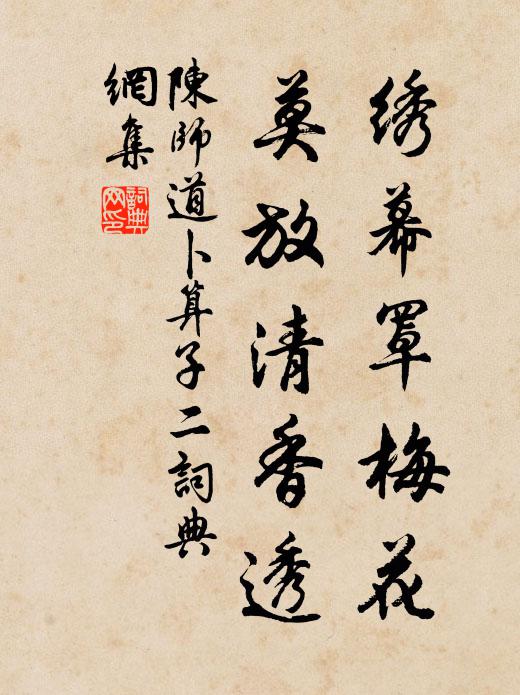 绣幕罩梅花
莫放清香透
陳師道卜算子二詞典
網集
詞典
网印